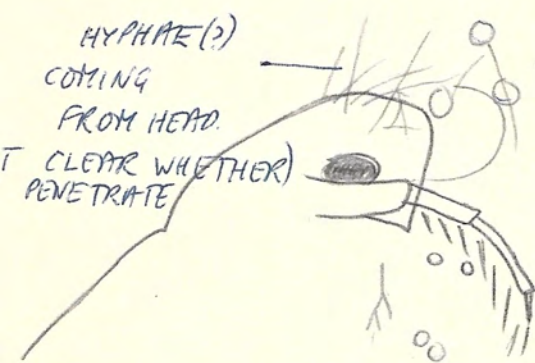 HYPHAE(?)
COMING
FROM HEAD.
T CLEAR WHETHER)
PENETRATE